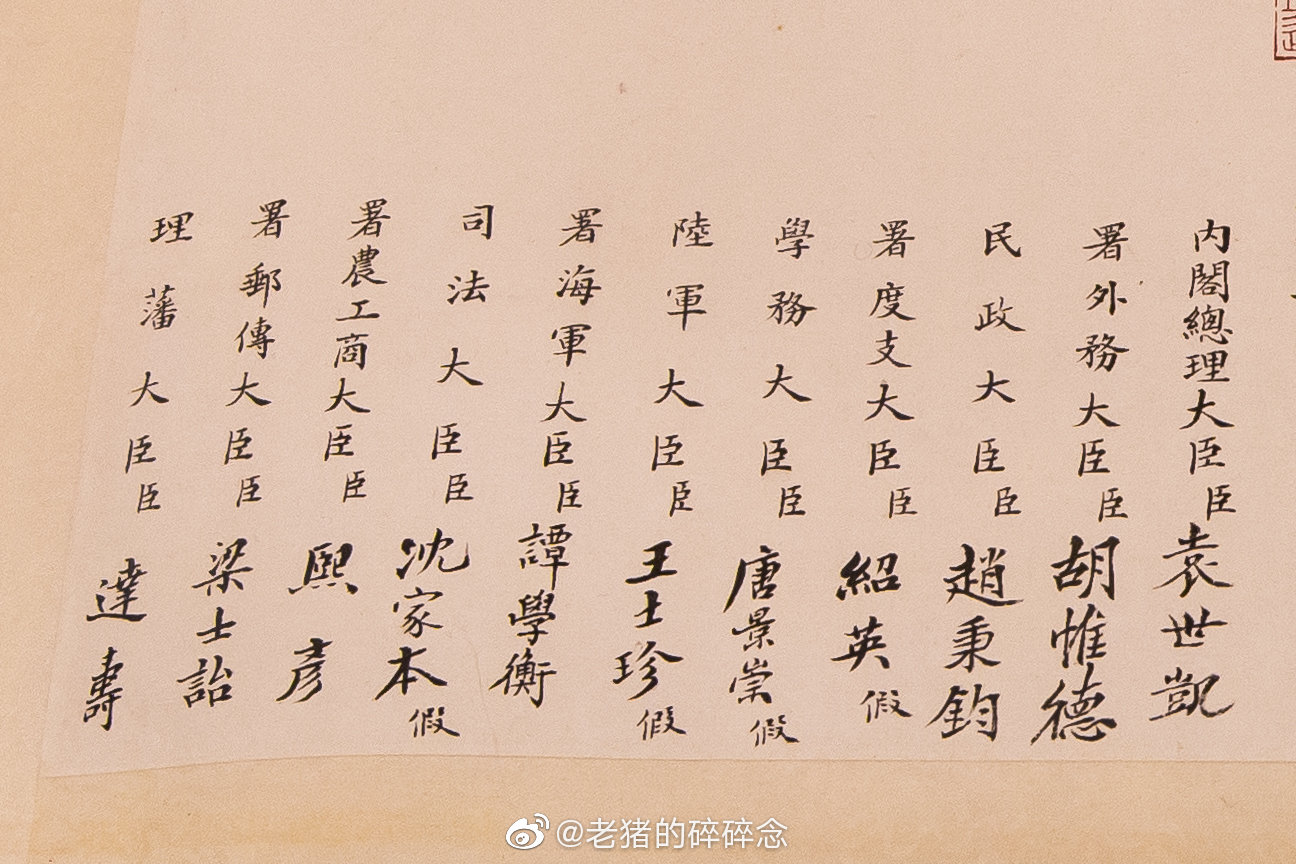 内閣總理大臣臣袁世凱
署外務大臣臣胡惟德
民政大臣臣趙秉鈞
署度支大臣臣紹英假
學務大臣臣唐景崇假
陸軍大臣臣王士珍假
署海軍大臣臣譚學衡
司法大臣臣沈家本假
署農工商大臣臣熙彥
署郵傳大臣臣梁士詒
理藩大臣臣達壽
@老猪的碎碎念